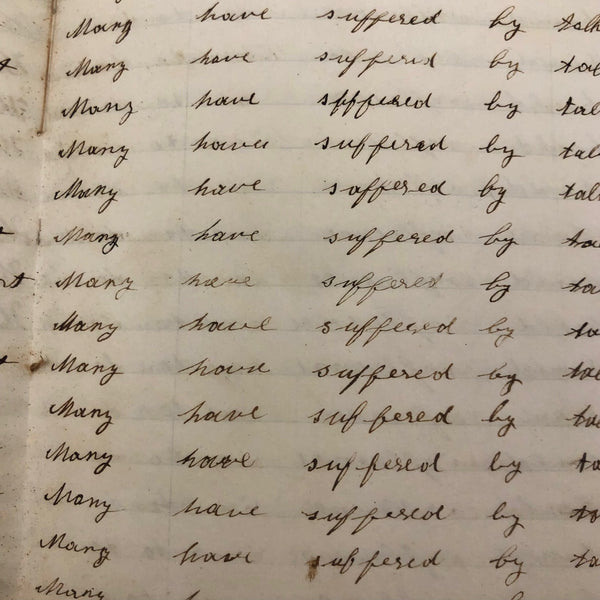 Many have suffered by talk
Many have suffered by tal
Many have spffered by tal
Many have suffered by tal
Many have soffered by tal
Many have suffered by ta
Many have suffered by ta
Many have suffered by ta
Many have suffered by tal
Many have suffered by ta
Many have suffered by ta
Many have suffered by ta
Many have suffered by ta
Many